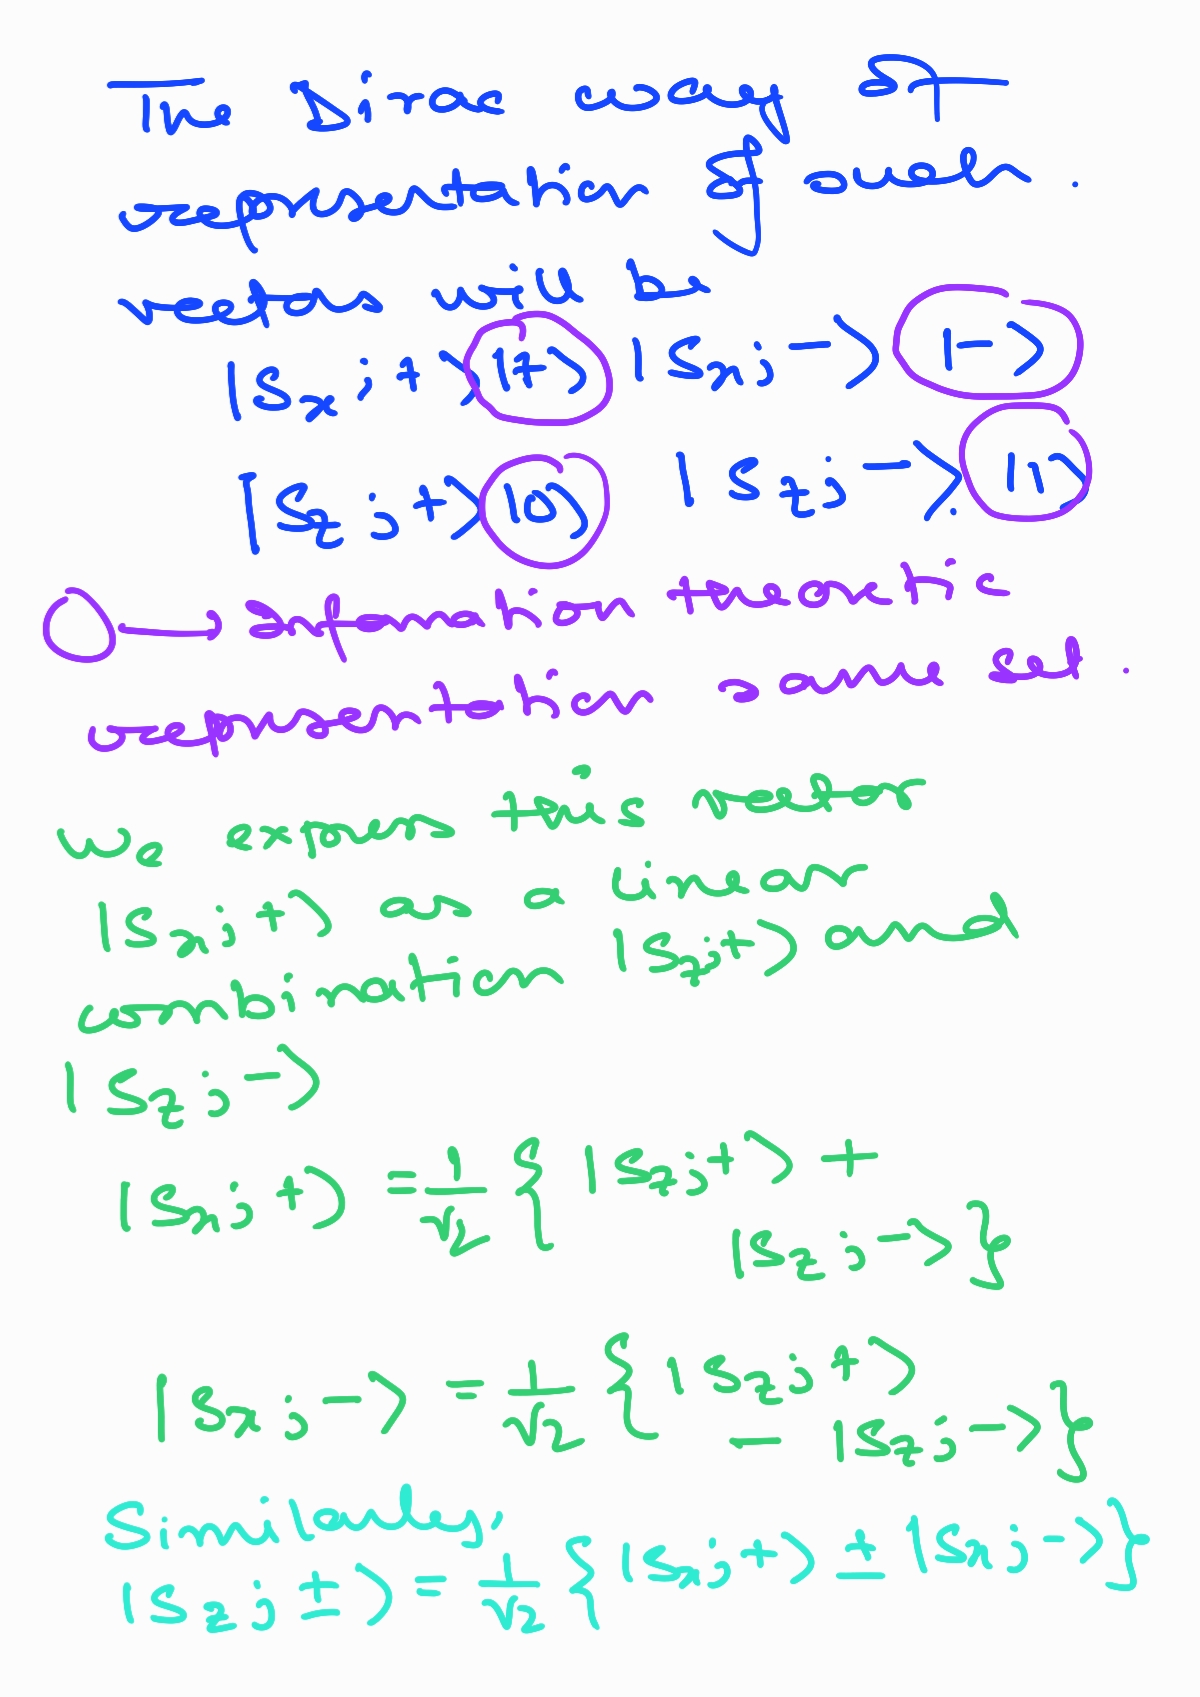 The Dirac way of
representation of such.
vectors will be
|Sx ; +⟩ |+⟩ |Sx; -⟩ |-⟩
|Sz ; +⟩ |0⟩ |Sz; -⟩. |1⟩
O → Information theoretic
representation same set.
We express this vector
|Sx; +⟩ as a linear
combination |Sz;+⟩ and
|Sz ; -⟩
|Sx; +⟩ = 1/√2 { |Sz;+⟩ +
|Sz ; -⟩ }
|Sx ; -⟩ = 1/√2 { |Sz; +⟩
- |Sz; -⟩ }
Similarly,
|Sz; ±⟩ = 1/√2 { |Sx;+⟩ ± |Sx; -⟩ }